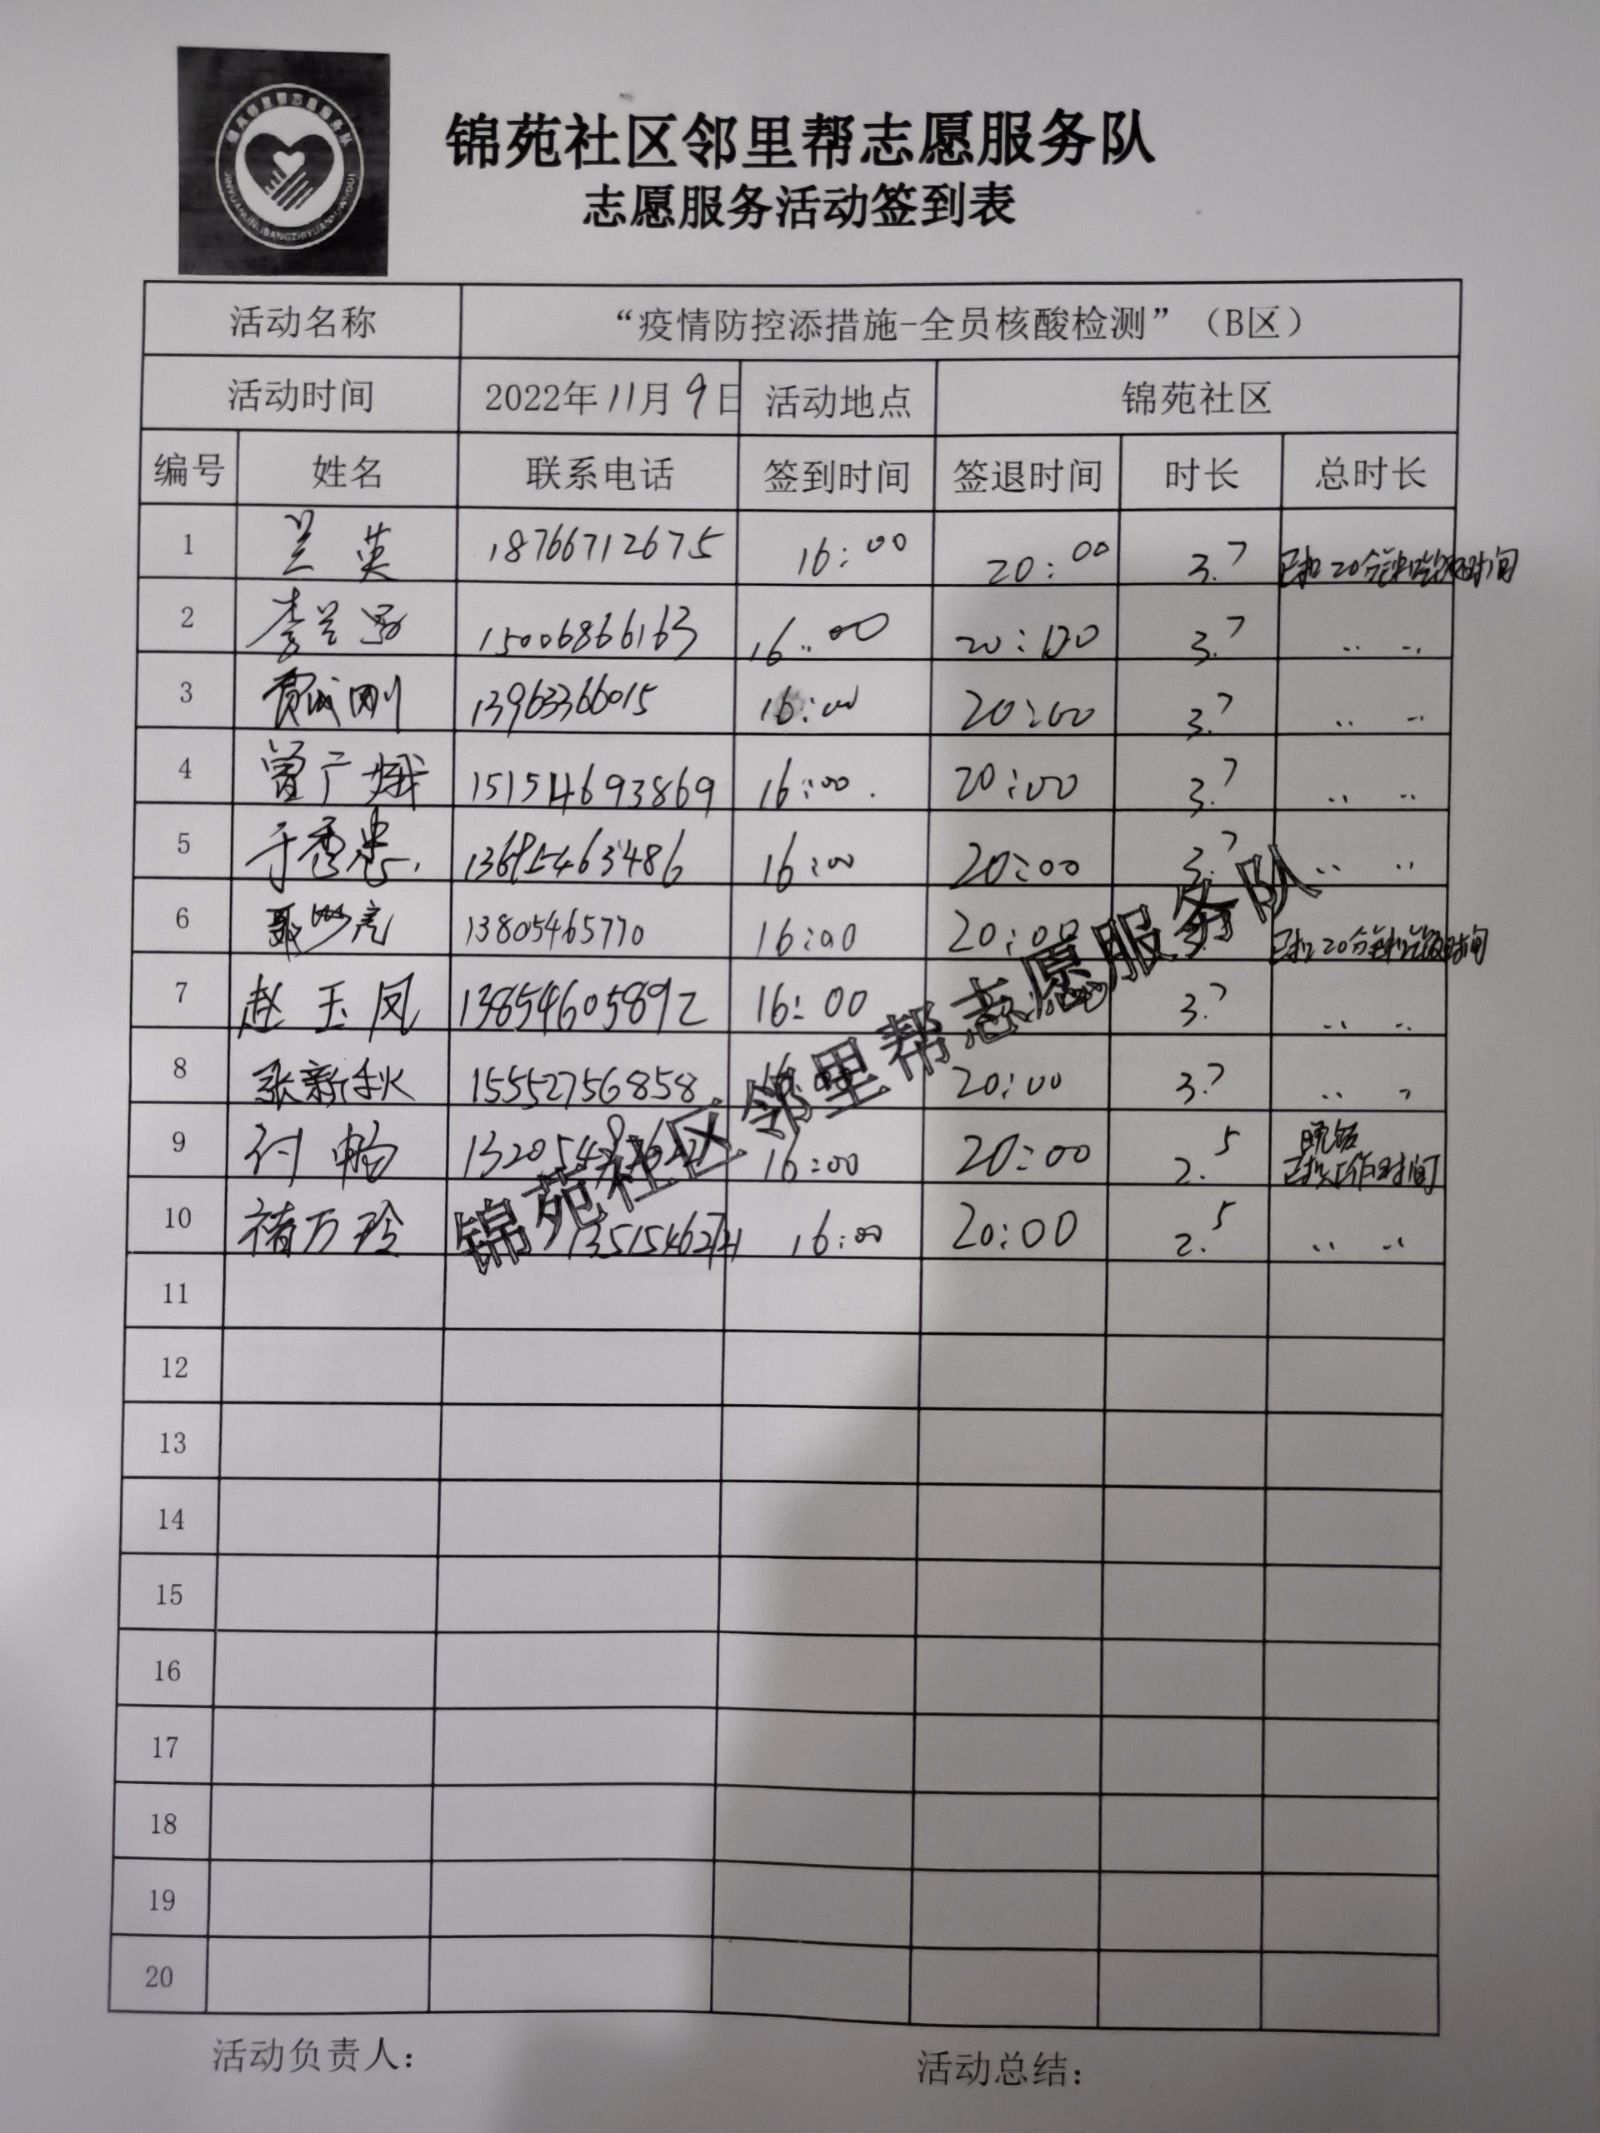 锦苑社区邻里帮志愿服务队
志愿服务活动签到表
活动名称 “疫情防控添措施-全员核酸检测”（B区）
活动时间 2022年11月9日 活动地点 锦苑社区
编号 姓名 联系电话 签到时间 签退时间 时长 总时长
1 兰英 18766712675 16:00 20:00 3.7 已扣20分钟吃饭时间
2 李兰 15006866163 16:00 20:00 3.7 .. ..
3 刚 13963366015 16:00 20:00 3.7 .. ..
4 曾广娥 15154693869 16:00 20:00 3.7 .. ..
5 于秀忠 16:00 20:00 3.7 .. ..
6 亮 13805465770 16:00 20:00 已扣20分钟吃饭时间
7 赵玉凤 13854605892 16:00 3.7 .. ..
8 张新秋 15552756858 20:00 3.7 .. ..
9 付畅 16:00 20:00 2.5 晚饭
已扣工作时间
10 褚万玲 16:00 20:00 2.5 .. ..
11
12
13
14
15
16
17
18
19
20
活动负责人： 活动总结：
锦苑社区邻里帮志愿服务队